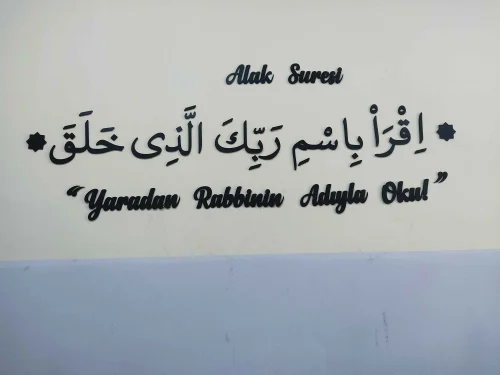 Alak Suresi
اِقْرَاْ بِاسْمِ رَبِّكَ الَّذِى خَلَقَ
“Yaradan Rabbinin Adıyla Oku!”